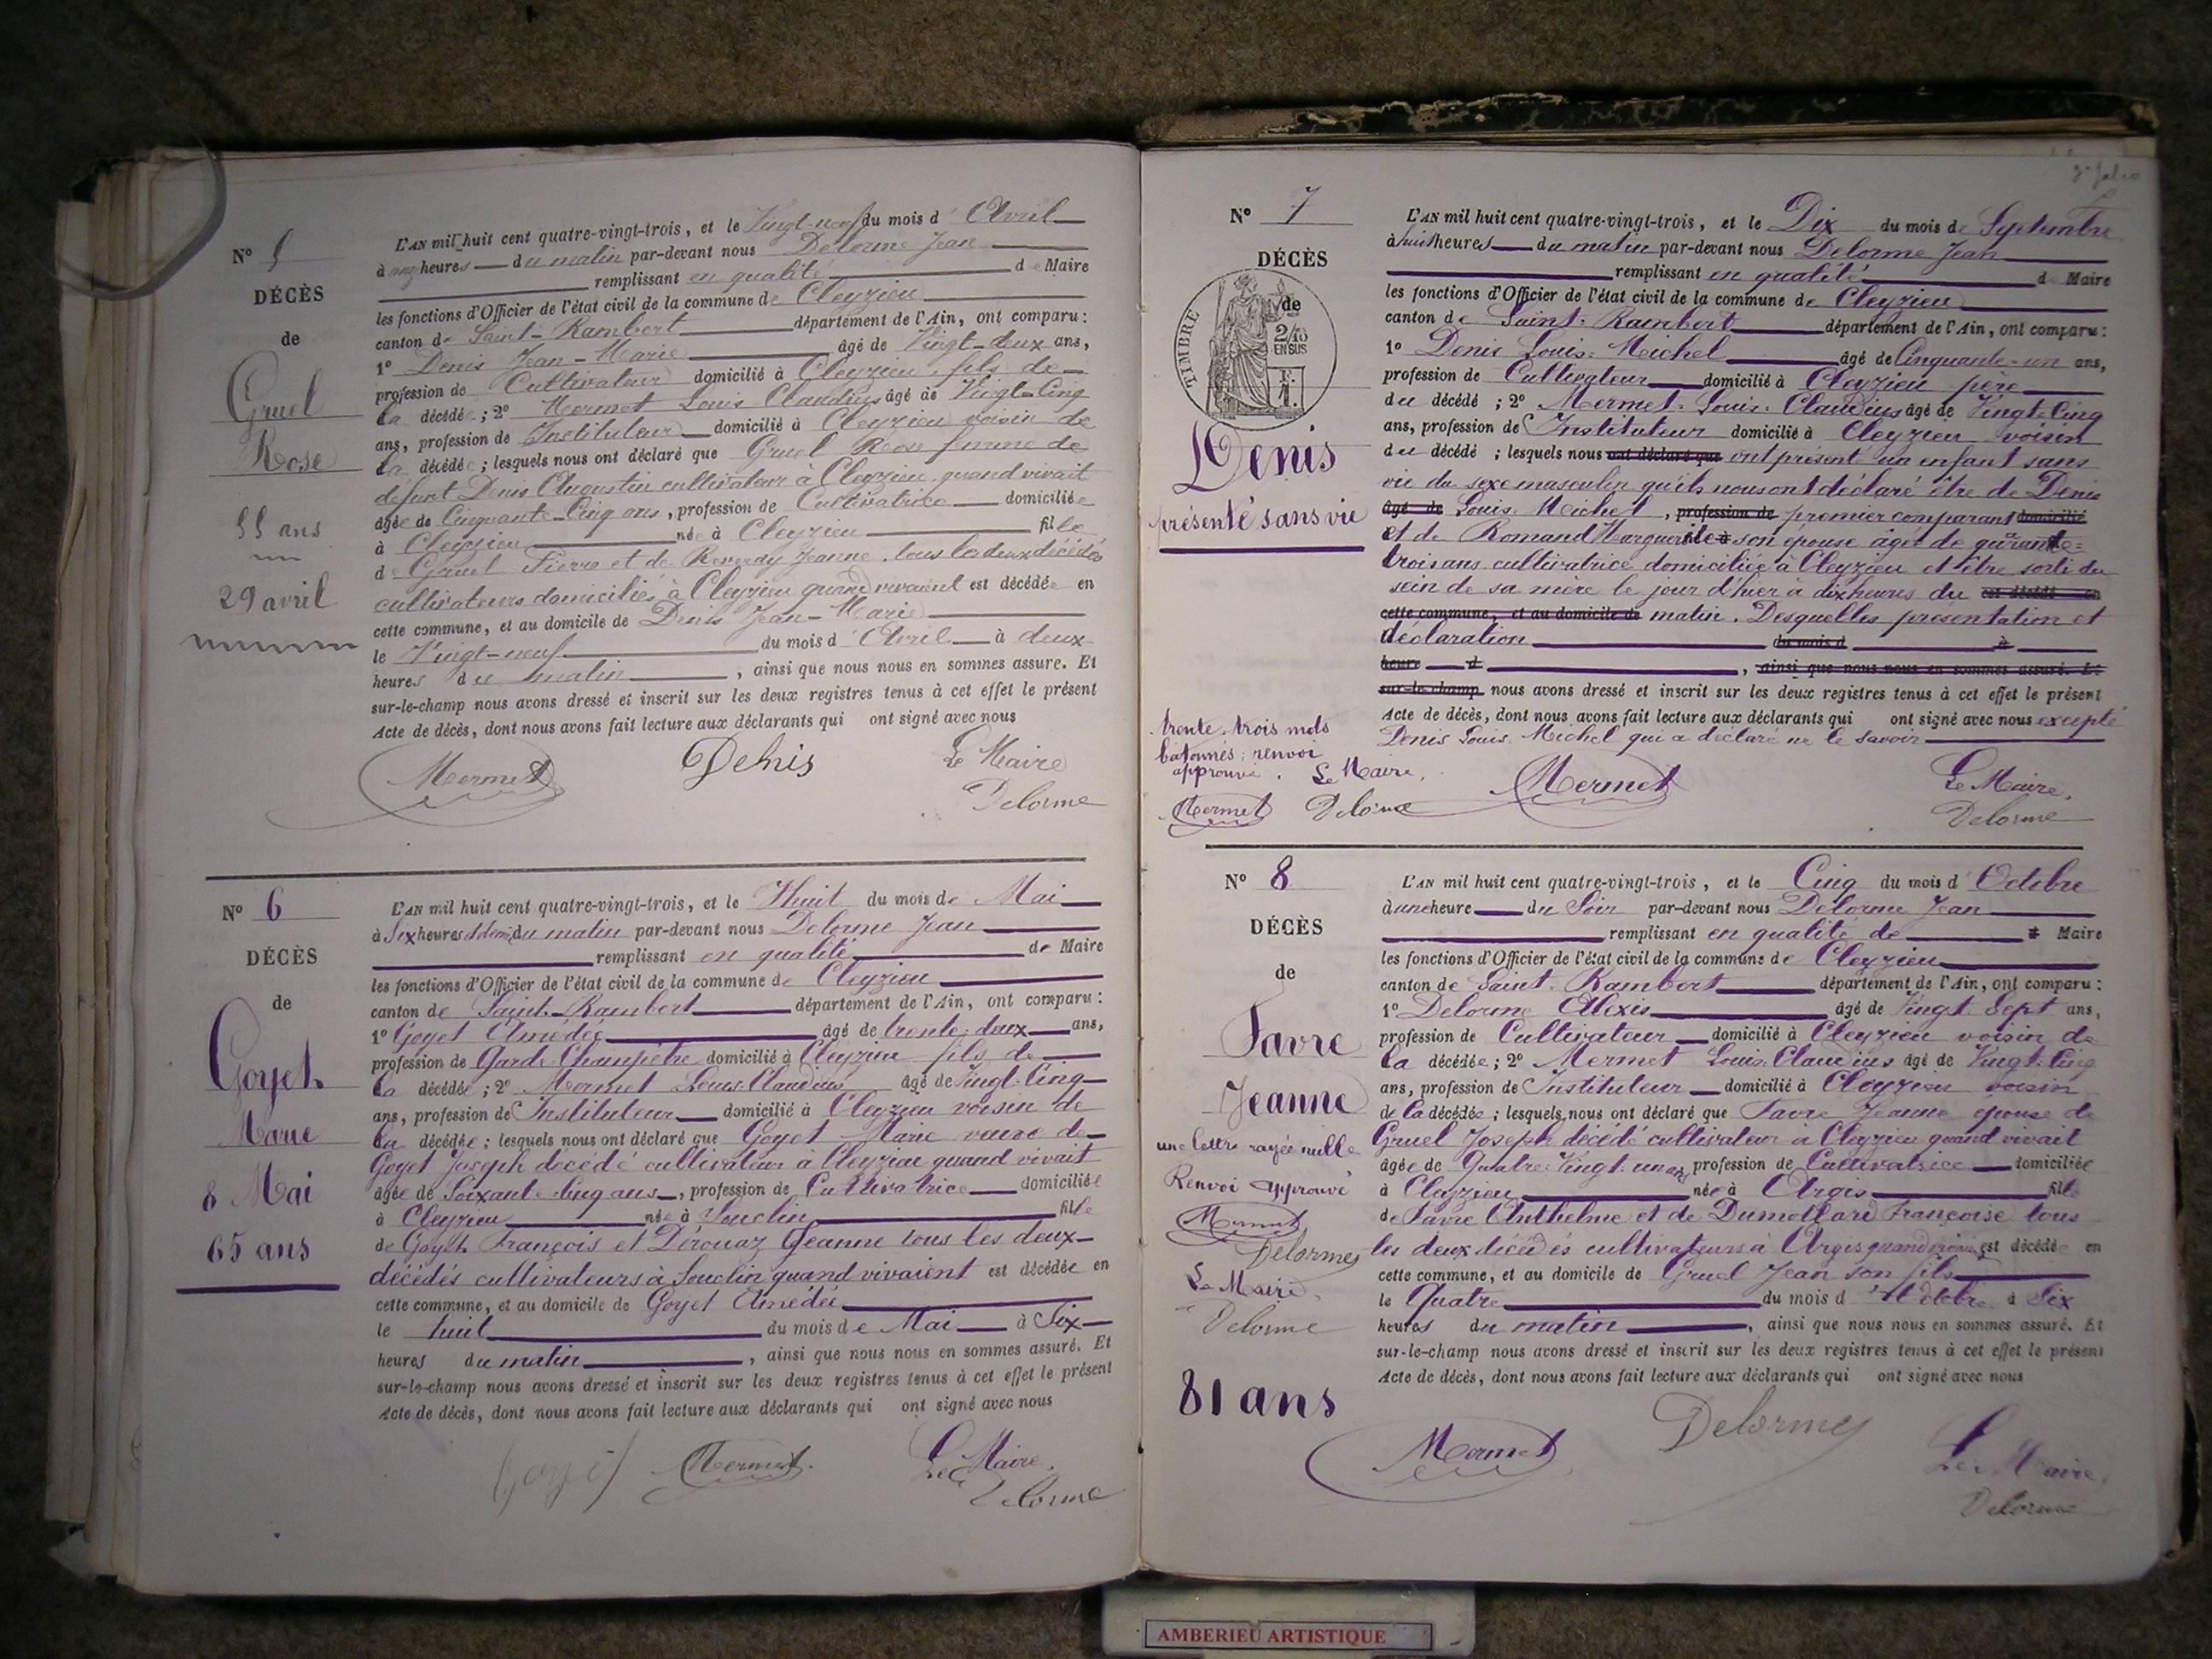 N° 5
DÉCÈS
de
Gruel
Rose
55 ans
29 avril
L'AN mil huit cent quatre-vingt-trois, et le Vingt-neuf du mois d'Avril
à onze heures du matin par-devant nous Delorme Jean
remplissant en qualité de Maire
les fonctions d'Officier de l'état civil de la commune de Cleyzieu
canton de Saint-Rambert département de l'Ain, ont comparu :
1° Denis Jean-Marie âgé de Vingt-deux ans,
profession de Cultivateur domicilié à Cleyzieu fils de
la décédée ; 2° Mermet Louis Claudius âgé de Vingt-Cinq
ans, profession de Instituteur domicilié à Cleyzieu voisin de
la décédée ; lesquels nous ont déclaré que Gruel Rose femme de
défunt Denis Augustin cultivateur à Cleyzieu quand vivait
âgée de Cinquante-Cinq ans, profession de Cultivatrice domiciliée
à Cleyzieu née à Cleyzieu fille
de Gruel Pierre et de Reverdy Jeanne tous les deux décédés
cultivateurs domiciliés à Cleyzieu quand vivaient est décédée en
cette commune, et au domicile de Denis Jean-Marie
le Vingt-neuf du mois d'Avril à deux
heures du matin, ainsi que nous nous en sommes assuré. Et
sur-le-champ nous avons dressé et inscrit sur les deux registres tenus à cet effet le présent
Acte de décès, dont nous avons fait lecture aux déclarants qui ont signé avec nous
Mermet Denis Le Maire
Delorme
N° 6
DÉCÈS
de
Goyet
Marie
8 Mai
65 ans
L'AN mil huit cent quatre-vingt-trois, et le Huit du mois de Mai
à Six heures et demie du matin par-devant nous Delorme Jean
remplissant en qualité de Maire
les fonctions d'Officier de l'état civil de la commune de Cleyzieu
canton de Saint-Rambert département de l'Ain, ont comparu :
1° Goyet Amédée âgé de trente-deux ans,
profession de Garde-Champêtre domicilié à Cleyzieu fils de
la décédée ; 2° Mermet Louis Claudius âgé de Vingt-Cinq
ans, profession de Instituteur domicilié à Cleyzieu voisin de
la décédée ; lesquels nous ont déclaré que Goyet Marie veuve de
Goyet Joseph décédé cultivateur à Cleyzieu quand vivait
âgée de Soixante-Cinq ans, profession de Cultivatrice domiciliée
à Cleyzieu née à Souclin fille
de Goyet François et Dérouaz Jeanne tous les deux
décédés cultivateurs à Souclin quand vivaient est décédée en
cette commune, et au domicile de Goyet Amédée
le huit du mois de Mai à Six
heures du matin, ainsi que nous nous en sommes assuré. Et
sur-le-champ nous avons dressé et inscrit sur les deux registres tenus à cet effet le présent
Acte de décès, dont nous avons fait lecture aux déclarants qui ont signé avec nous
Goyet Mermet Le Maire
Delorme
N° 7
DÉCÈS
de
TIMBRE
2/10
EN SUS
Denis
présenté sans vie
L'AN mil huit cent quatre-vingt-trois, et le Dix du mois de Septembre
à huit heures du matin par-devant nous Delorme Jean
remplissant en qualité de Maire
les fonctions d'Officier de l'état civil de la commune de Cleyzieu
canton de Saint-Rambert département de l'Ain, ont comparu :
1° Denis Louis-Michel âgé de Cinquante-un ans,
profession de Cultivateur domicilié à Cleyzieu père
du décédé ; 2° Mermet Louis-Claudius âgé de Vingt-Cinq
ans, profession de Instituteur domicilié à Cleyzieu voisin
du décédé ; lesquels nous ont déclaré que ont présenté un enfant sans
vie du sexe masculin qu'ils nous ont déclaré être de Denis
âgé de Louis Michel, profession de premier comparant domicilié
et de Romand Marguerite à son épouse agée de quarante-
trois ans cultivatrice domiciliée à Cleyzieu et être sorti du
sein de sa mère le jour d'hier à dix heures du est décédé en
cette commune, et au domicile de matin. Desquelles présentation et
déclaration du mois d à
heure d, ainsi que nous nous en sommes assuré. Et
sur-le-champ nous avons dressé et inscrit sur les deux registres tenus à cet effet le présent
Acte de décès, dont nous avons fait lecture aux déclarants qui ont signé avec nous excepté
Denis Louis Michel qui a déclaré ne le savoir
trente-trois mots
batonnés : renvoi
approuvé. Le Maire,
Mermet Delorme
Mermet Le Maire,
Delorme
N° 8
DÉCÈS
de
Favre
Jeanne
une lettre rayée nulle
Renvoi approuvé
Mermet
Delormes
Le Maire
Delorme
81 ans
L'AN mil huit cent quatre-vingt-trois, et le Cinq du mois d'Octobre
à une heure du Soir par-devant nous Delorme Jean
remplissant en qualité de Maire
les fonctions d'Officier de l'état civil de la commune de Cleyzieu
canton de Saint-Rambert département de l'Ain, ont comparu :
1° Delorme Alexis âgé de Vingt-Sept ans,
profession de Cultivateur domicilié à Cleyzieu voisin de
la décédée ; 2° Mermet Louis-Claudius âgé de Vingt-Cinq
ans, profession de Instituteur domicilié à Cleyzieu voisin
de la décédée ; lesquels nous ont déclaré que Favre Jeanne épouse de
Gruel Joseph décédé cultivateur à Cleyzieu quand vivait
âgée de Quatre-Vingt-un ans, profession de Cultivatrice domiciliée
à Cleyzieu née à Argis fille
de Favre Anthelme et de Dumollard Françoise tous
les deux décédés cultivateurs à Argis quand est décédée en
cette commune, et au domicile de Gruel Jean son fils
le Quatre du mois d'Octobre à Six
heures du matin, ainsi que nous nous en sommes assuré. Et
sur-le-champ nous avons dressé et inscrit sur les deux registres tenus à cet effet le présent
Acte de décès, dont nous avons fait lecture aux déclarants qui ont signé avec nous
Mermet Delormes Le Maire.
Delorme
AMBERIEU ARTISTIQUE